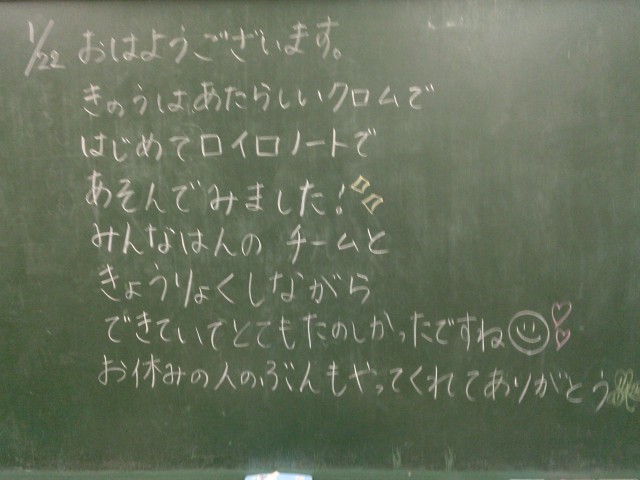 1/22 おはようございます。
きのうはあたらしいクロムで
はじめてロイロノートで
あそんでみました!
みんなはんの チームと
きょうりょくしながら
できていてとてもたのしかったですね
お休みの人のぶんもやってくれてありがとう